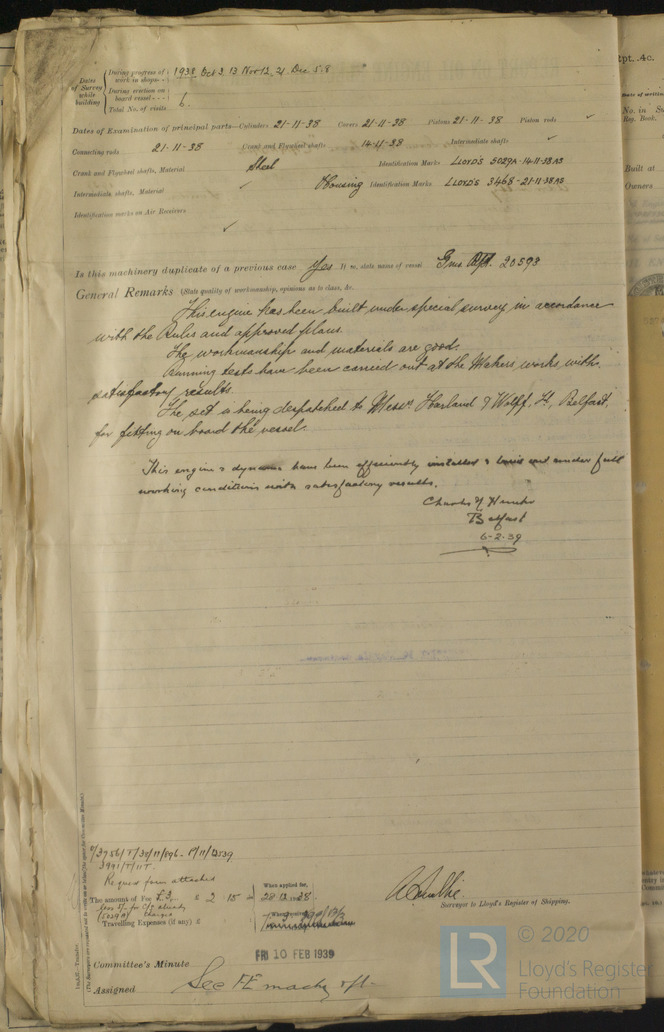 Rpt. 4c.
Dates of Survey while building
During progress of work in shops - - 1938 Oct 3. 13 Nov 12, 21. Dec. 5. 8
During erection on board vessel - - -
Total No. of visits 6.
Dates of Examination of principal parts—Cylinders 21-11-38 Covers 21-11-38 Pistons 21-11-38 Piston rods ✓
Connecting rods 21-11-38 Crank and Flywheel shafts 14-11-38 Intermediate shafts ✓
Crank and Flywheel shafts, Material Steel Identification Marks LLOYD'S 5029A-14-11-38 AS
Intermediate shafts, Material ✓ Housing Identification Marks LLOYD'S 3468-21-11-38 AS
Identification marks on Air Receivers
✓
Is this machinery duplicate of a previous case Yes If so, state name of vessel Gms. Rpt. 20593
General Remarks (State quality of workmanship, opinions as to class, &c.
This engine has been built under special survey in accordance
with the Rules and approved plans.
The workmanship and materials are good.
Running tests have been carried out at the Makers works, with
satisfactory results.
The set is being despatched to Messrs Harland & Wolff, Ld, Belfast,
for fitting on board the vessel.
This engine & dynamo have been efficiently installed & tried out under full
working conditions with satisfactory results.
Belfast
6-2-39
Request form attached
The amount of Fee £3 £ 2 15 When applied for, 28.12.1938.
Travelling Expenses (if any) £
Surveyor to Lloyd's Register of Shipping.
FRI 10 FEB 1939
Committee's Minute
Assigned See FE machy rpt.
Built at
Owners
© 2020
LR
Lloyd's Register
Foundation